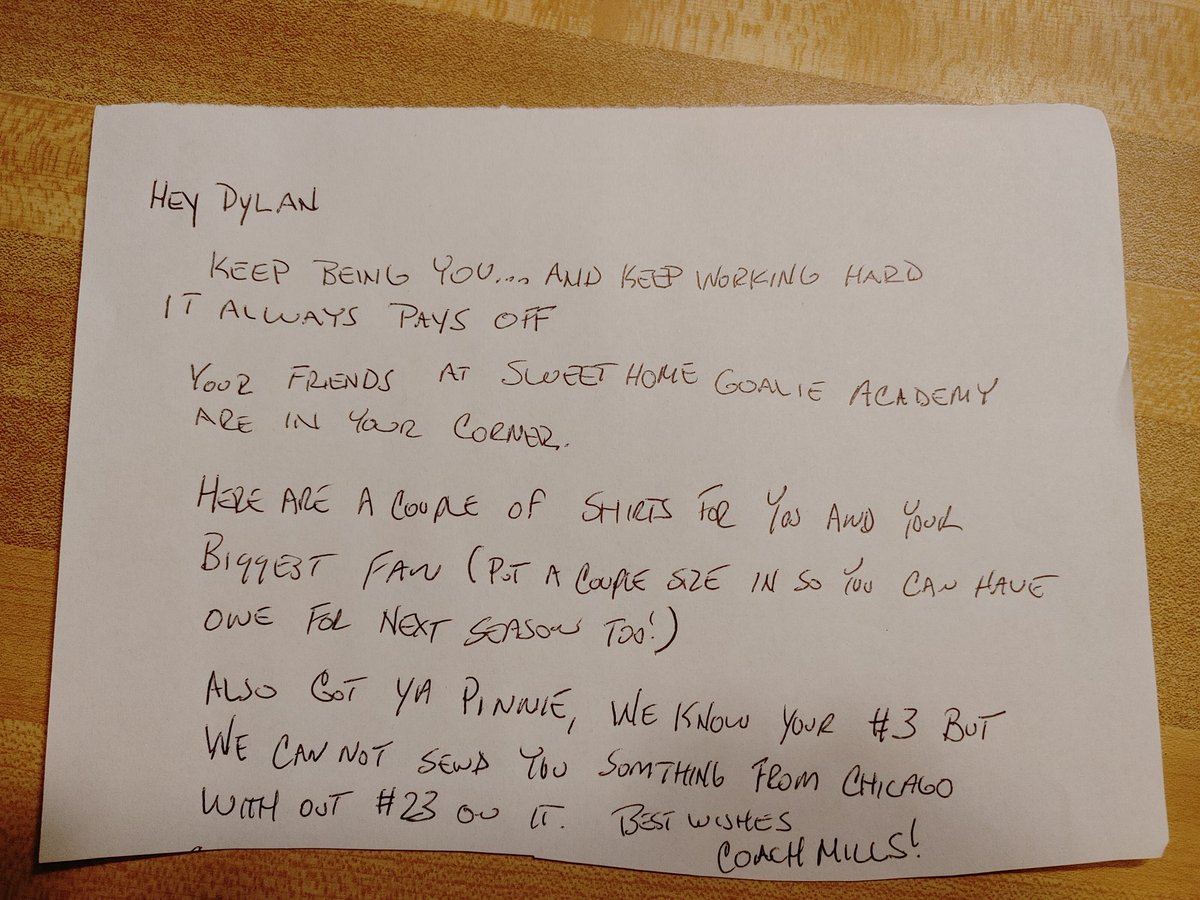 HEY DYLAN
KEEP BEING YOU... AND KEEP WORKING HARD
IT ALWAYS PAYS OFF
YOUR FRIENDS AT SWEET HOME GOALIE ACADEMY
ARE IN YOUR CORNER.
HERE ARE A COUPLE OF SHIRTS FOR YOU AND YOUR
BIGGEST FAN (PUT A COUPLE SIZE IN SO YOU CAN HAVE
ONE FOR NEXT SEASON TOO!)
ALSO GOT YA PINNIE, WE KNOW YOUR #3 BUT
WE CAN NOT SEND YOU SOMTHING FROM CHICAGO
WITH OUT #23 ON IT. BEST WISHES
COACH MILLS!